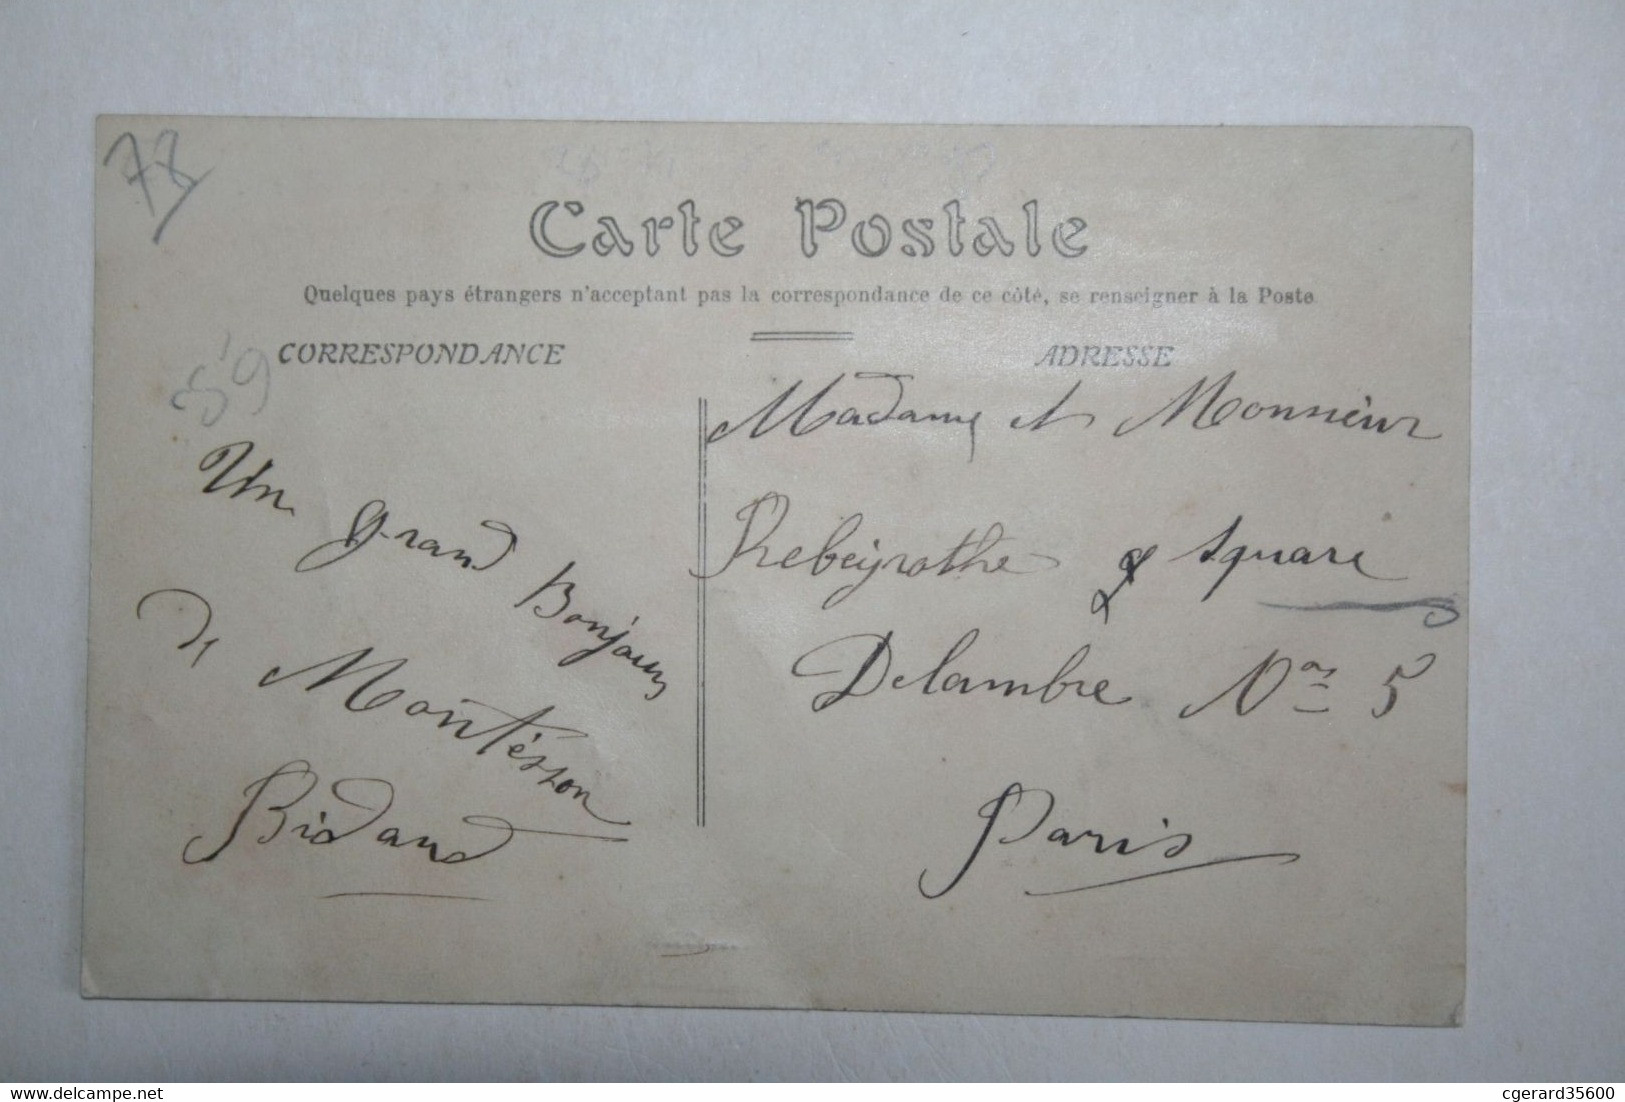 78
Carte Postale
Quelques pays étrangers n'acceptant pas la correspondance de ce côté, se renseigner à la Poste
CORRESPONDANCE
59
Un grand Bonjour
de Montésson
Bidaud
ADRESSE
Madame et Monsieur
Rebeyrothe square
Delambre Nos 5
Paris
delcampe.net
cgerard35600